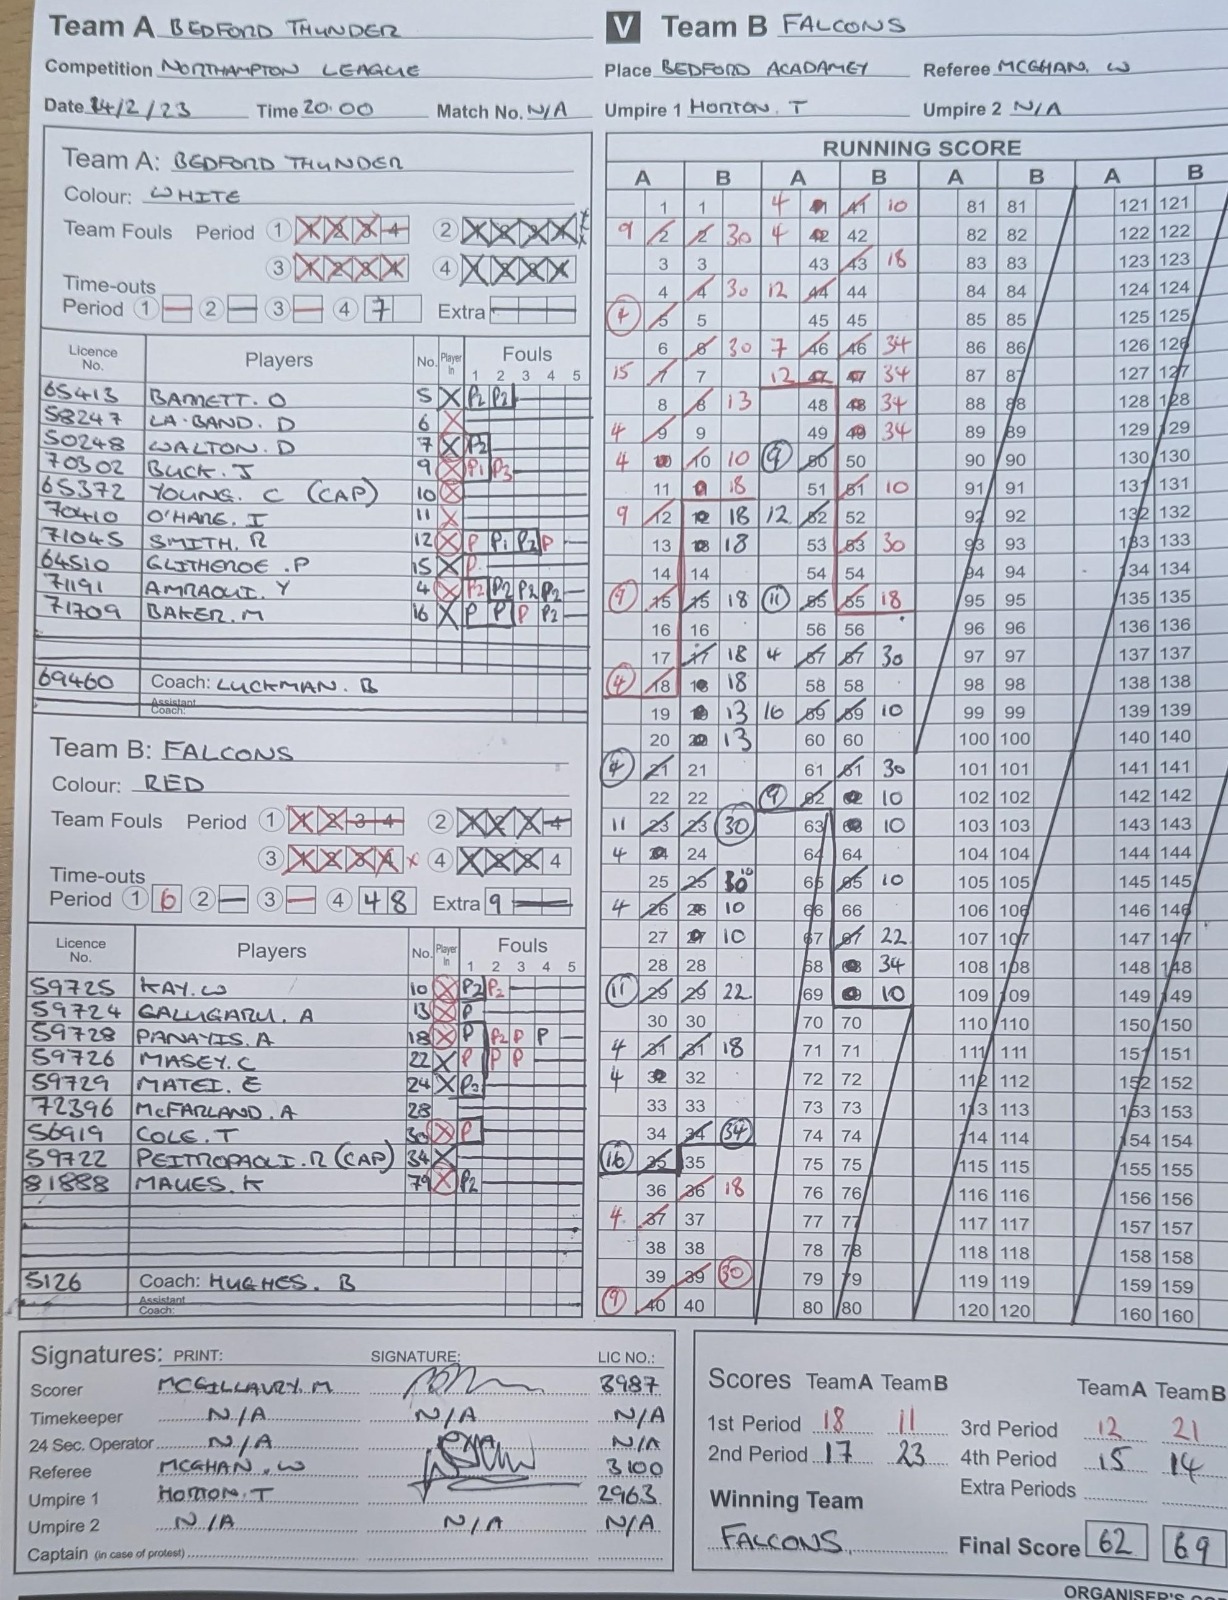 Team A BEDFORD THUNDER V Team B FALCONS
Competition NORTHAMPTON LEAGUE Place BEDFORD ACADAMEY Referee MCGHAN. W
Date 14/2/23 Time 20.00 Match No. N/A Umpire 1 HORTON. T Umpire 2 N/A
Team A: BEDFORD THUNDER
Colour: WHITE
Team Fouls Period 1 1 2 3 4 2 1 2 3 4
3 1 2 3 4 4 1 2 3 4
Time-outs
Period 1 2 3 4 7 Extra
Licence No. Players No. Player In Fouls 1 2 3 4 5
65413 BARRETT. O 5 X P2 P2
58247 LA-BAND. D 6 X
50248 WALTON. D 7 X P2
70302 BUCK. J 9 X P1 P3
65372 YOUNG. C (CAP) 10 X
70410 O'HARE. I 11 X
71045 SMITH. R 12 X P P1 P2 P
64510 GLITHEROE. P 15 X P
71191 AMRAOUI. Y 4 X P2 P2 P2 P2
71709 BAKER. M 16 X P P P P2
69460 Coach: LUCKMAN. B
Assistant Coach:
Team B: FALCONS
Colour: RED
Team Fouls Period 1 1 2 3 4 2 1 2 3 4
3 1 2 3 4 x 4 1 2 3 4
Time-outs
Period 1 6 2 3 4 4 8 Extra 9
Licence No. Players No. Player In Fouls 1 2 3 4 5
59725 KAY. W 10 X P2 P2
59724 GALUGARU. A 13 X P
59728 PANAYIS. A 18 X P P2 P P
59726 MASEY. C 22 X P P P
59729 MATEI. E 24 X P2
72396 McFARLAND. A 28
56919 COLE. T 30 X P
59722 PEITROPAOLI. R (CAP) 34 X
81888 MAUES. K 79 X P2
5126 Coach: HUGHES. B
Assistant Coach:
RUNNING SCORE
A B A B A B A B
1 1 4 41 41 10 81 81 121 121
9 2 2 30 4 42 42 82 82 122 122
3 3 43 43 18 83 83 123 123
4 4 30 12 44 44 84 84 124 124
4 5 5 45 45 85 85 125 125
6 6 30 7 46 46 34 86 86 126 126
15 7 7 12 47 47 34 87 87 127 127
8 8 13 48 48 34 88 88 128 128
4 9 9 49 49 34 89 89 129 129
4 10 10 10 9 50 50 90 90 130 130
11 11 18 51 51 10 91 91 131 131
9 12 12 18 12 52 52 92 92 132 132
13 13 18 53 53 30 93 93 133 133
14 14 54 54 94 94 134 134
9 15 15 18 11 55 55 18 95 95 135 135
16 16 56 56 96 96 136 136
17 17 18 4 57 57 30 97 97 137 137
4 18 18 18 58 58 98 98 138 138
19 19 13 16 59 59 10 99 99 139 139
20 20 13 60 60 100 100 140 140
4 21 21 61 61 30 101 101 141 141
22 22 9 62 62 10 102 102 142 142
11 23 23 30 63 63 10 103 103 143 143
4 24 24 64 64 104 104 144 144
25 25 10 65 65 10 105 105 145 145
4 26 26 10 66 66 106 106 146 146
27 27 10 67 67 22 107 107 147 147
28 28 68 68 34 108 108 148 148
11 29 29 22 69 69 10 109 109 149 149
30 30 70 70 110 110 150 150
4 31 31 18 71 71 111 111 151 151
4 32 32 72 72 112 112 152 152
33 33 73 73 113 113 153 153
34 34 34 74 74 114 114 154 154
16 35 35 75 75 115 115 155 155
36 36 18 76 76 116 116 156 156
4 37 37 77 77 117 117 157 157
38 38 78 78 118 118 158 158
39 39 30 79 79 119 119 159 159
9 40 40 80 80 120 120 160 160
Signatures: PRINT: SIGNATURE: LIC NO.:
Scorer MCGILLAVRY. M 3987
Timekeeper N/A N/A N/A
24 Sec. Operator N/A N/A
Referee MCGHAN. W 3100
Umpire 1 HORTON. T 2963
Umpire 2 N/A N/A N/A
Captain (in case of protest)
Scores Team A Team B Team A Team B
1st Period 18 11 3rd Period 12 21
2nd Period 17 23 4th Period 15 14
Extra Periods
Winning Team
FALCONS Final Score 62 69